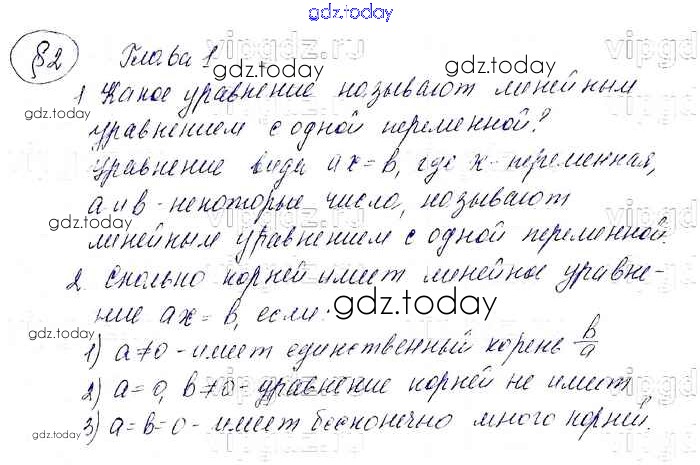 gdz.today
§2 Глава 1
1 Какое уравнение называют линейным
уравнением с одной переменной?
уравнение вида ax = b, где x - переменная,
a и b - некоторые число, называют
линейным уравнением с одной переменной.
2. Сколько корней имеет линейное уравне-
ние ax = b, если:
1) a ≠ 0 - имеет единственный корень b/a
2) a = 0, b ≠ 0 - уравнение корней не имеет
3) a = b = 0 - имеет бесконечно много корней.
vipgdz.ru
gdz.today
gdz.today
gdz.today
gdz.today
gdz.today
gdz.today
gdz.today